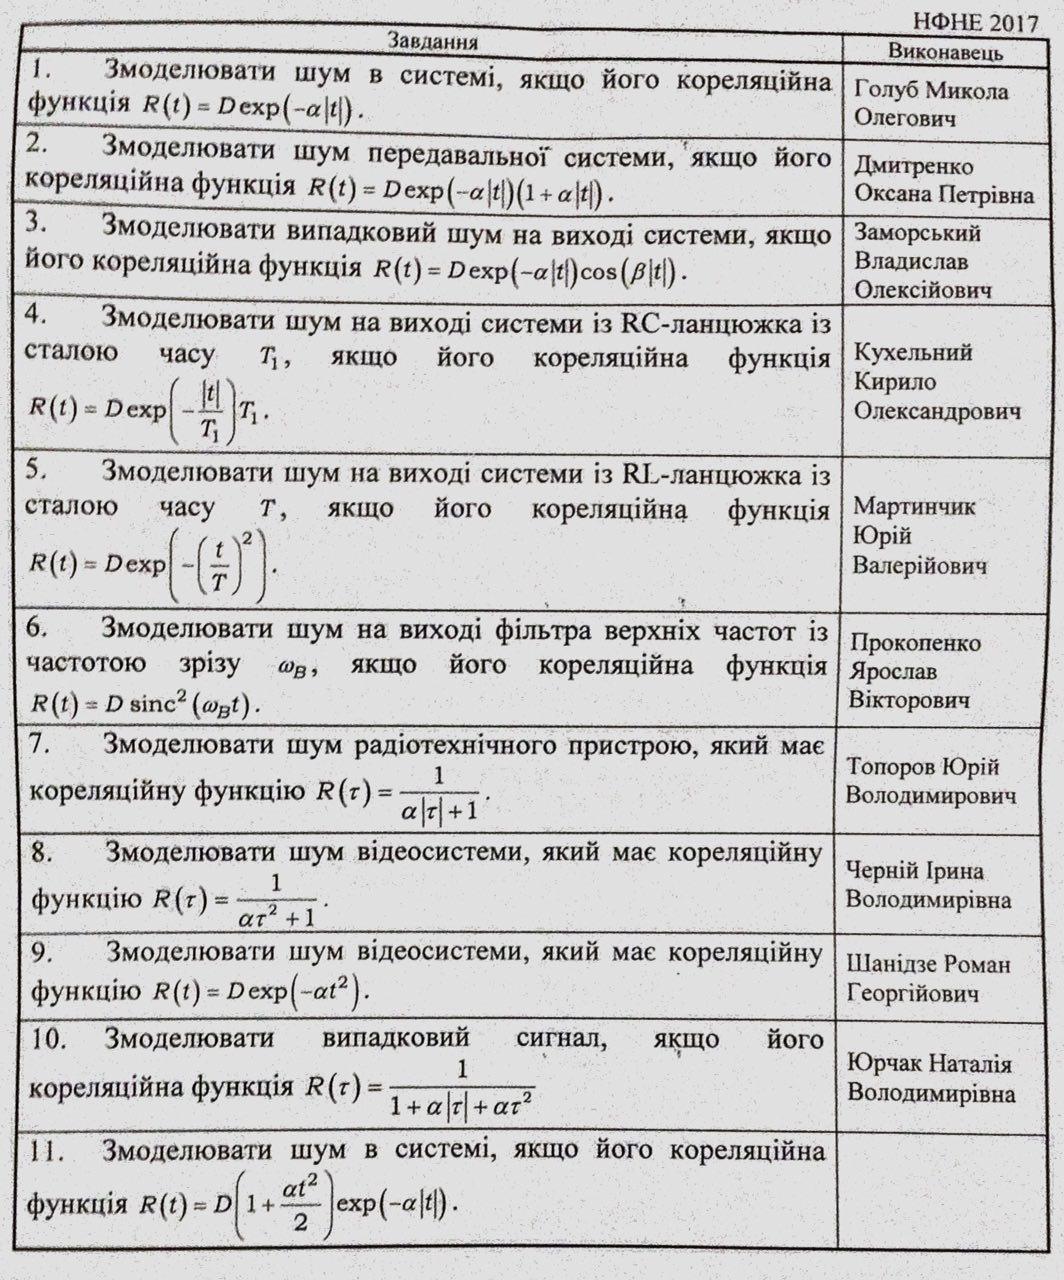 НФНЕ 2017
Завдання
Виконавець
1. Змоделювати шум в системі, якщо його кореляційна
функція R(t) = D exp(−α|t|).
Голуб Микола
Олегович
2. Змоделювати шум передавальної системи, якщо його
кореляційна функція R(t) = D exp(−α|t|)(1 + α|t|).
Дмитренко
Оксана Петрівна
3. Змоделювати випадковий шум на виході системи, якщо
його кореляційна функція R(t) = D exp(−α|t|)cos(β|t|).
Заморський
Владислав
Олексійович
4. Змоделювати шум на виході системи із RC-ланцюжка із
сталою часу T₁, якщо його кореляційна функція
R(t) = D exp(−|t|/T₁)T₁.
Кухельний
Кирило
Олександрович
5. Змоделювати шум на виході системи із RL-ланцюжка із
сталою часу T, якщо його кореляційна функція
R(t) = D exp(−(t/T)²).
Мартинчик
Юрій
Валерійович
6. Змоделювати шум на виході фільтра верхніх частот із
частотою зрізу ω_B, якщо його кореляційна функція
R(t) = D sinc²(ω_B t).
Прокопенко
Ярослав
Вікторович
7. Змоделювати шум радіотехнічного пристрою, який має
кореляційну функцію R(τ) = 1/(α|τ| + 1).
Топоров Юрій
Володимирович
8. Змоделювати шум відеосистеми, який має кореляційну
функцію R(τ) = 1/(ατ² + 1).
Черній Ірина
Володимирівна
9. Змоделювати шум відеосистеми, який має кореляційну
функцію R(t) = D exp(−αt²).
Шанідзе Роман
Георгійович
10. Змоделювати випадковий сигнал, якщо його
кореляційна функція R(τ) = 1/(1 + α|τ| + ατ²)
Юрчак Наталія
Володимирівна
11. Змоделювати шум в системі, якщо його кореляційна
функція R(t) = D(1 + αt²/2)exp(−α|t|).